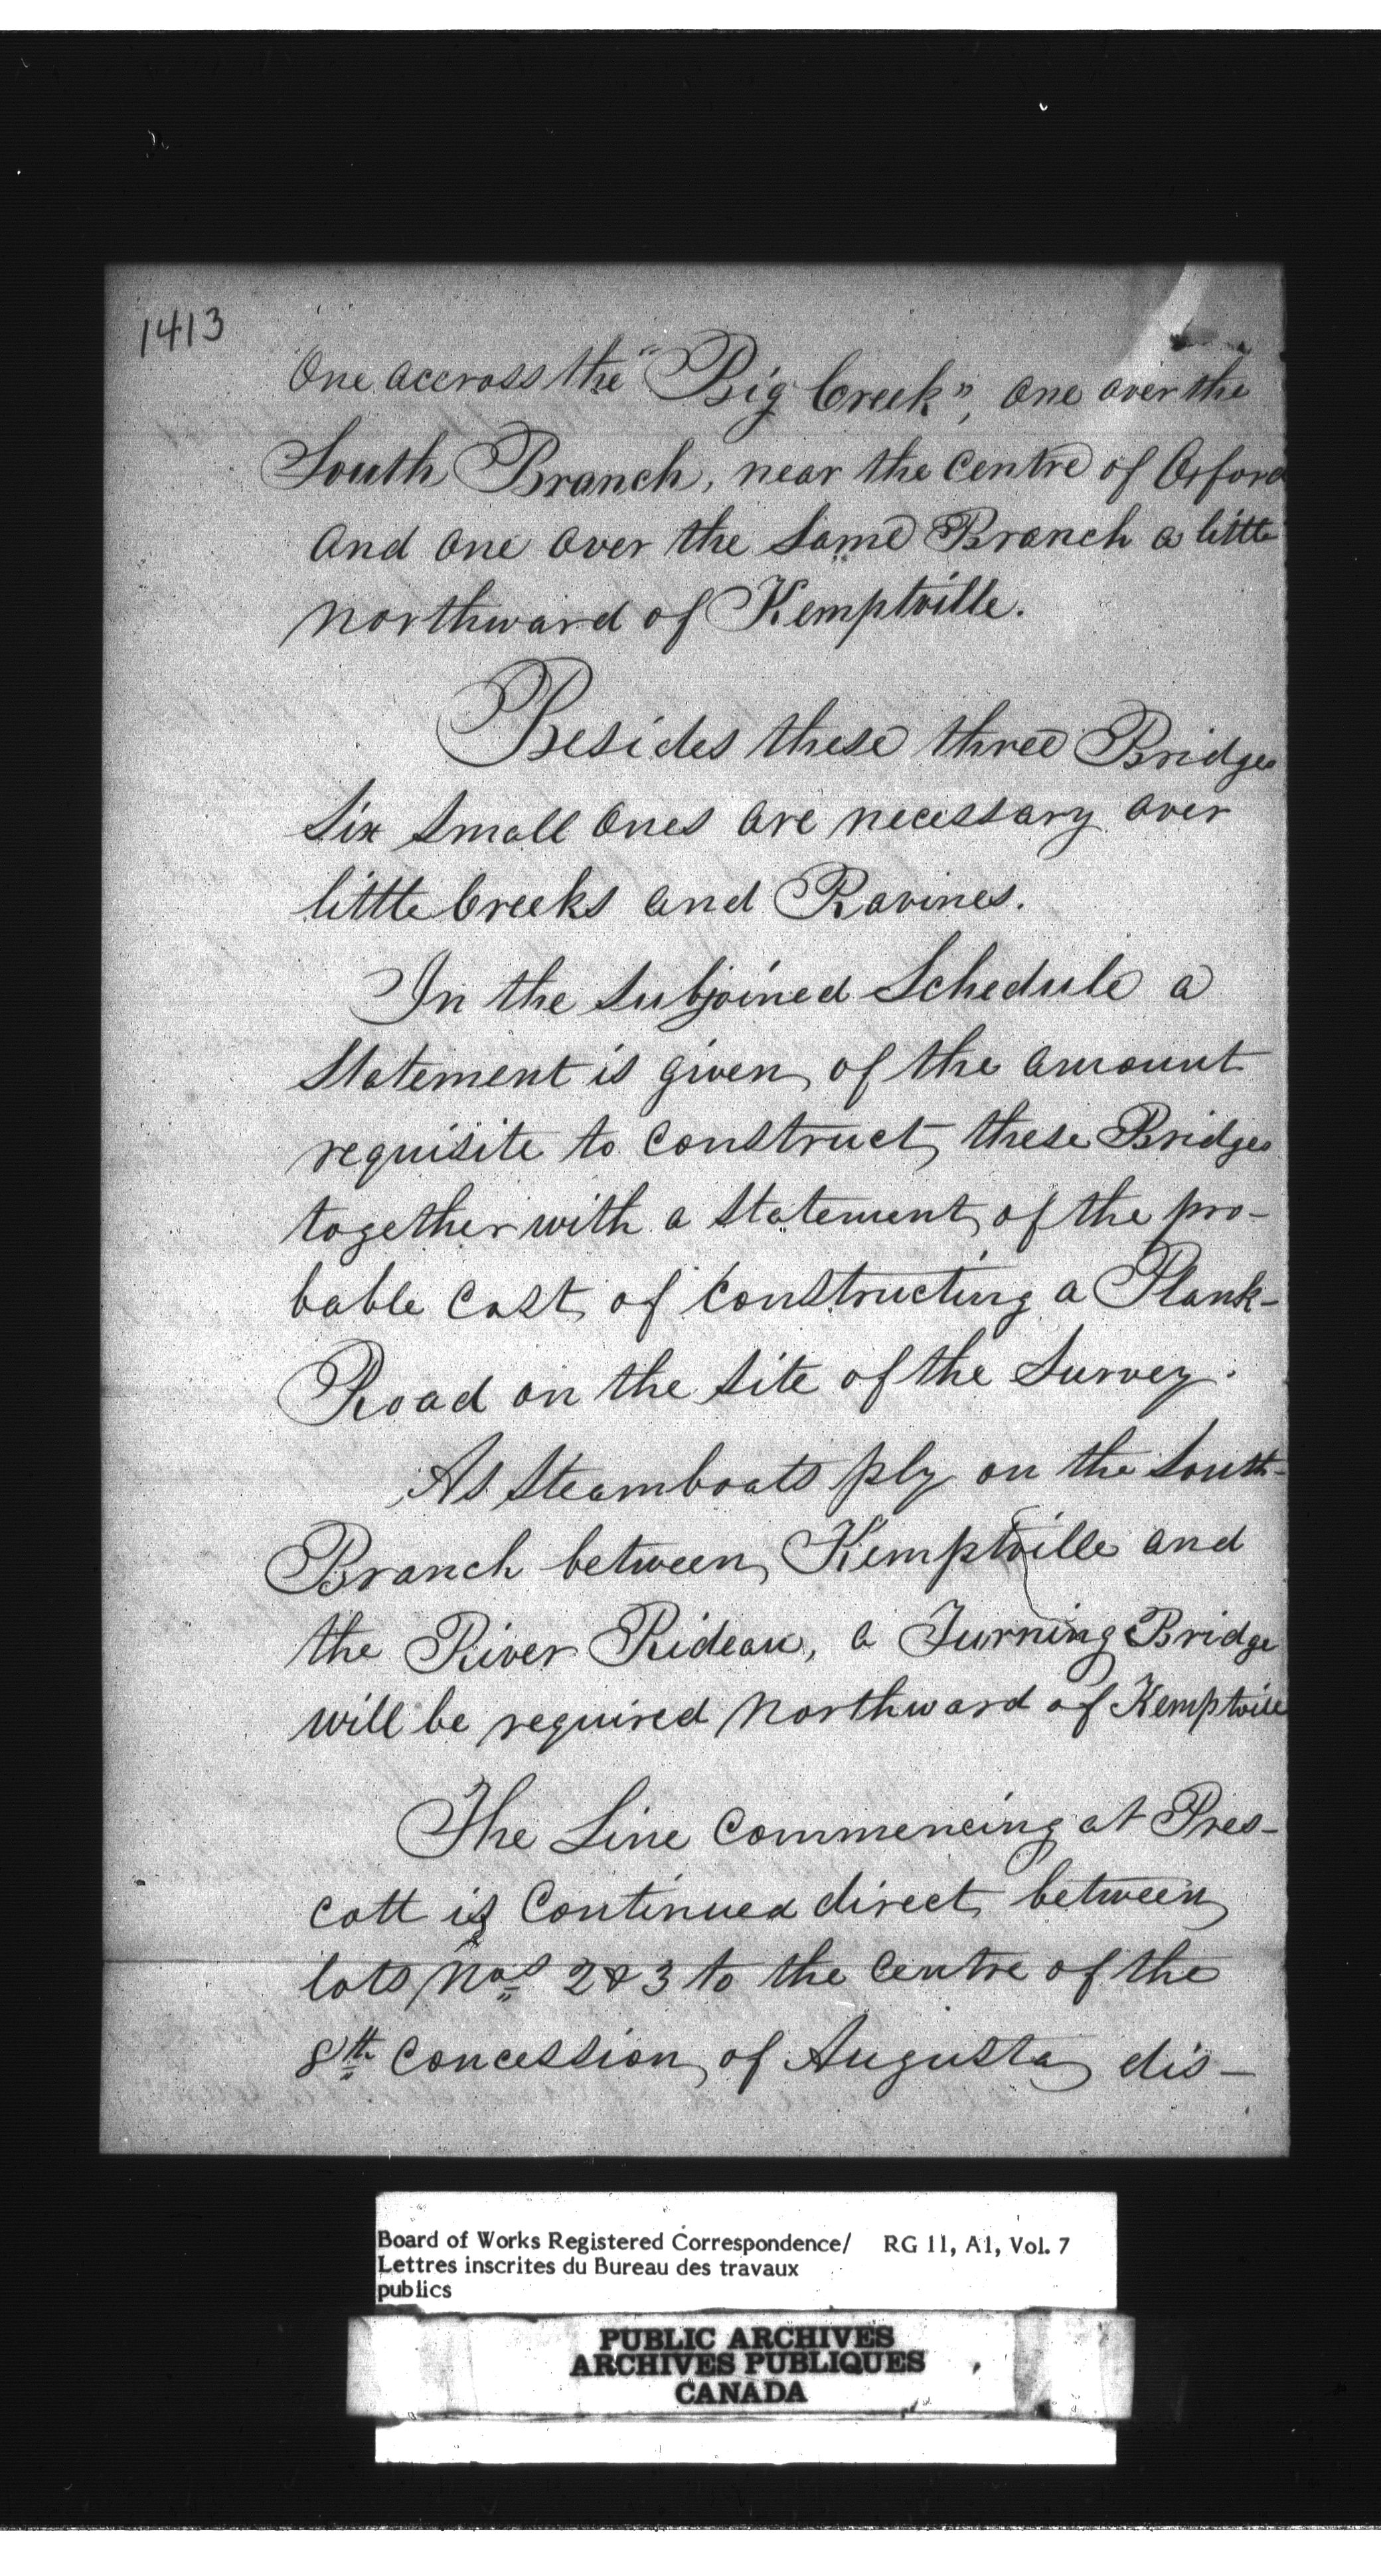 1413
One accross the "Big Creek", one over the
South Branch, near the centre of Oxford
and one over the same Branch a little
northward of Kemptville.
Besides these three Bridges
six small ones are necessary over
little Creeks and Ravines.
In the subjoined Schedule a
statement is given of the amount
requisite to construct these Bridges
together with a statement of the pro-
bable cost of constructing a Plank-
Road on the site of the Survey.
As Steamboats ply on the South-
Branch between Kemptville and
the River Rideau, a Turning Bridge
will be required northward of Kemptville
The Line commencing at Pres-
cott is continued direct between
lots Nos 2 & 3 to the centre of the
8th concession of Augusta dis-
Board of Works Registered Correspondence/ RG 11, A1, Vol. 7
Lettres inscrites du Bureau des travaux
publics
PUBLIC ARCHIVES
ARCHIVES PUBLIQUES
CANADA